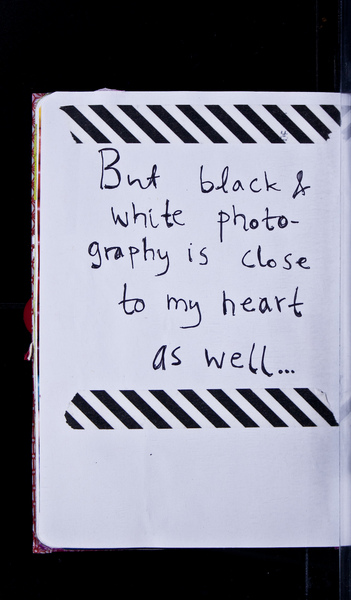 But black &
white photo-
graphy is close
to my heart
as well...